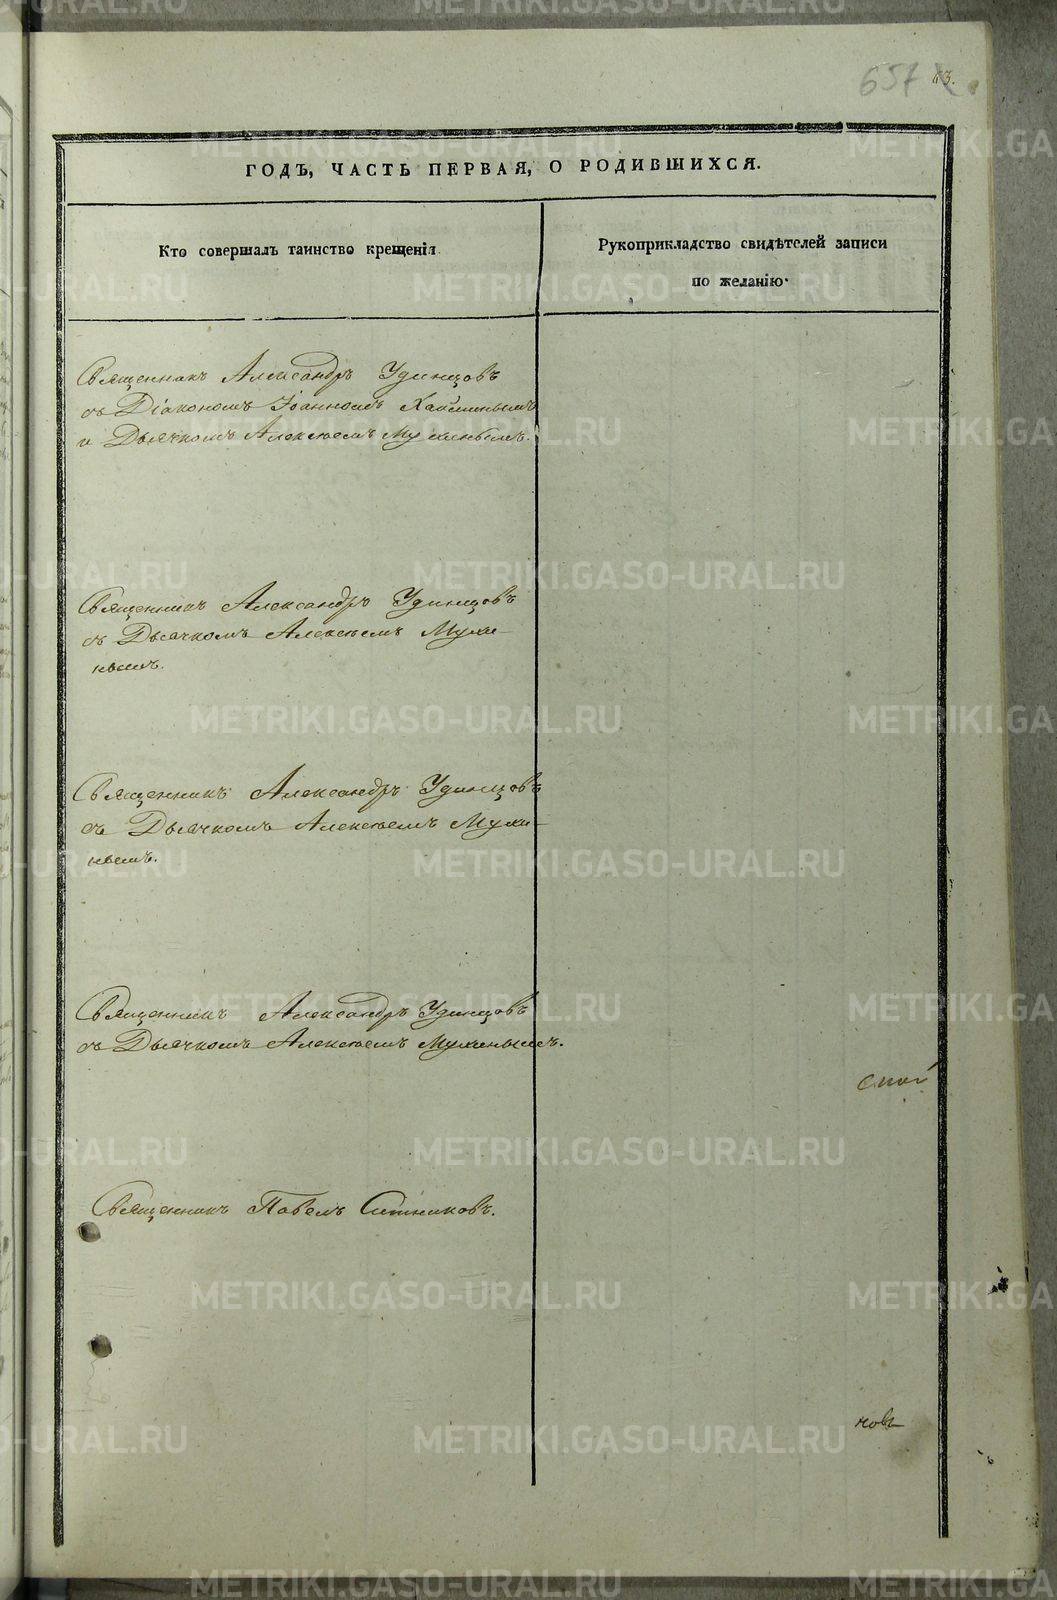 657
43.
ГОДЪ, ЧАСТЬ ПЕРВАЯ, О РОДИВШИХСЯ.
Кто совершалъ таинство крещенія
Рукоприкладство свидѣтелей записи
по желанію.
Священникъ Александръ Удинцовъ
съ Діакономъ Іоанномъ
и Дьячкомъ Алексѣемъ Мухинымъ.
Священникъ Александръ Удинцовъ
съ Дьячкомъ Алексѣемъ Мухи-
нымъ.
Священникъ Александръ Удинцовъ
съ Дьячкомъ Алексѣемъ Мухи-
нымъ.
Священникъ Александръ Удинцовъ
съ Дьячкомъ Алексѣемъ Мухинымъ.
ской
Священникъ Павелъ Ситниковъ.
новъ
METRIKI.GASO-URAL.RU